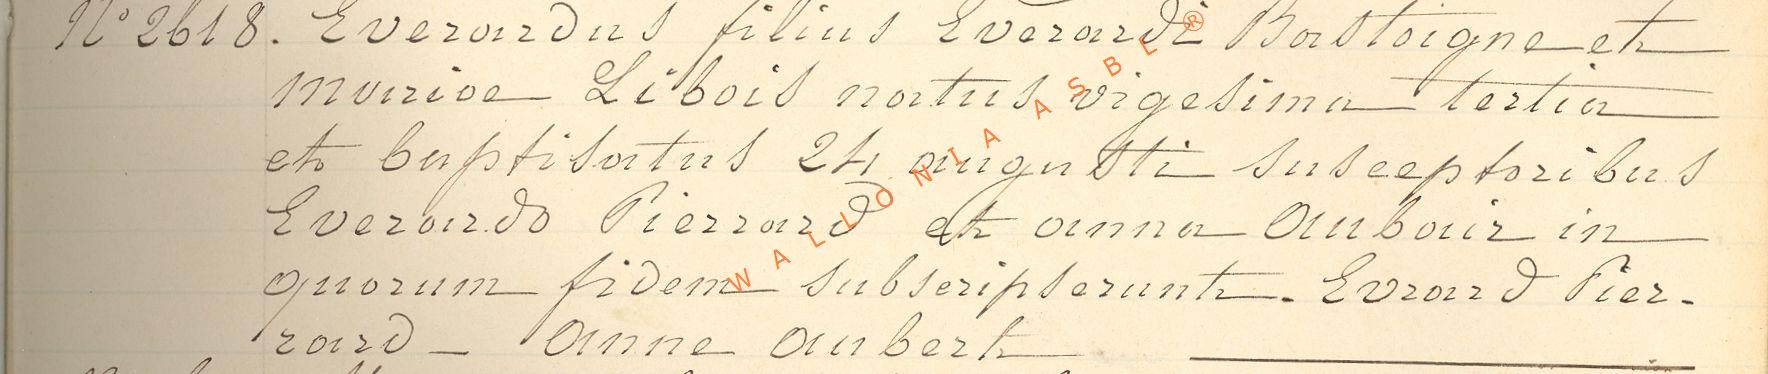 N° 2618. Everardus filius Everardi Bastoigne et
mariae Libois natus vigesima tertia
et baptisatus 24 augusti susceptoribus
Everardo Pierrard et anna Aubair in
quorum fidem subscripserunt. Evrard Pier-
rard _ Anne Aubert
WALLONIA ASBL®